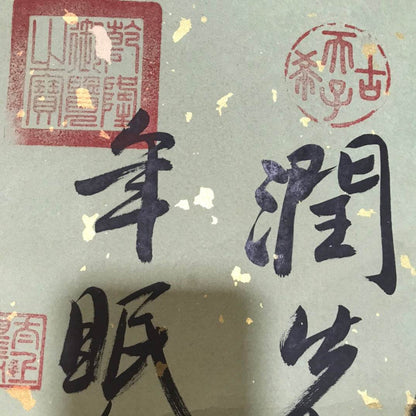 古希天子
乾隆御覽之寶
潤
年眠